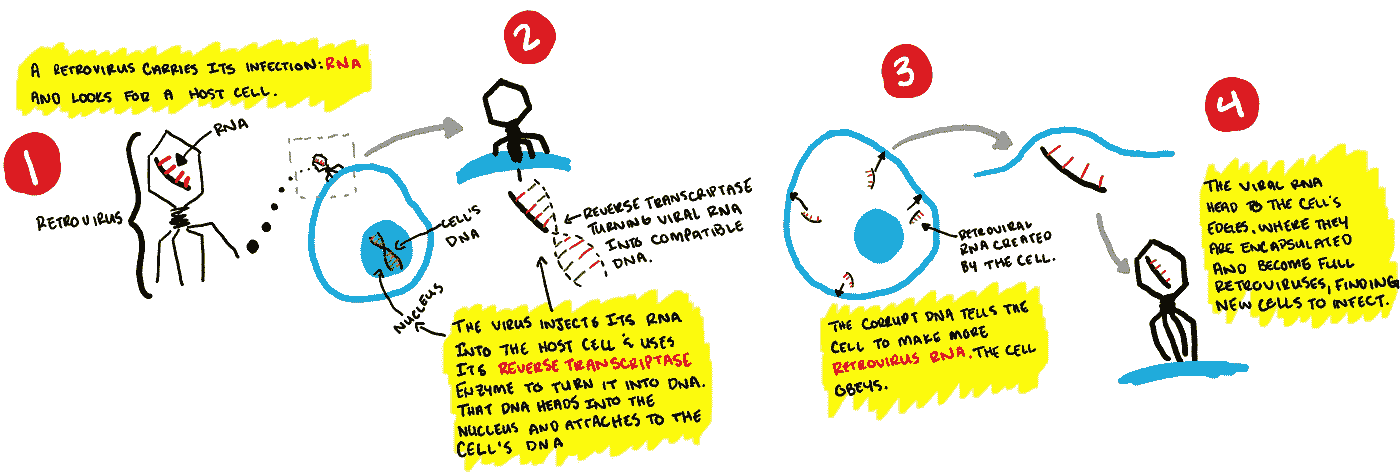 1
A RETROVIRUS CARRIES ITS INFECTION: RNA
AND LOOKS FOR A HOST CELL.
RNA
RETROVIRUS
CELL'S
DNA
NUCLEUS
2
REVERSE TRANSCRIPTASE
TURNING VIRAL RNA
INTO COMPATIBLE
DNA.
THE VIRUS INJECTS ITS RNA
INTO THE HOST CELL & USES
ITS REVERSE TRANSCRIPTASE
ENZYME TO TURN IT INTO DNA.
THAT DNA HEADS INTO THE
NUCLEUS AND ATTACHES TO THE
CELL'S DNA
3
RETROVIRAL
RNA CREATED
BY THE CELL.
THE CORRUPT DNA TELLS THE
CELL TO MAKE MORE
RETROVIRUS RNA. THE CELL
OBEYS.
4
THE VIRAL RNA
HEAD TO THE CELL'S
EDGES, WHERE THEY
ARE ENCAPSULATED
AND BECOME FULL
RETROVIRUSES, FINDING
NEW CELLS TO INFECT.